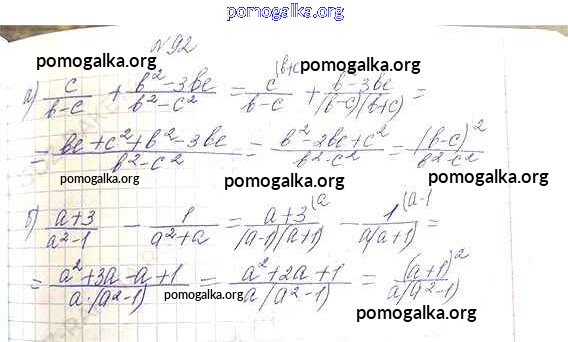 pomogalka.org
№92
pomogalka.org pomogalka.org
а) c/(b-c) + (b²-3bc)/(b²-c²) = c (b+c/(b-c) + (b-3bc)/((b-c)(b+c)) =
= (bc+c²+b²-3bc)/(b²-c²) = (b²-2bc+c²)/(b²-c²) = (b-c)²/(b²-c²)
pomogalka.org pomogalka.org pomogalka.org
б) (a+3)/(a²-1) - 1/(a²+a) = (a+3 (a)/((a-1)(a+1)) - 1 (a-1/(a(a+1)) =
= (a²+3a-a+1)/(a·(a²-1)) = (a²+2a+1)/(a(a²-1)) = (a+1)²/(a(a²-1))
pomogalka.org
pomogalka.org pomogalka.org pomogalka.org